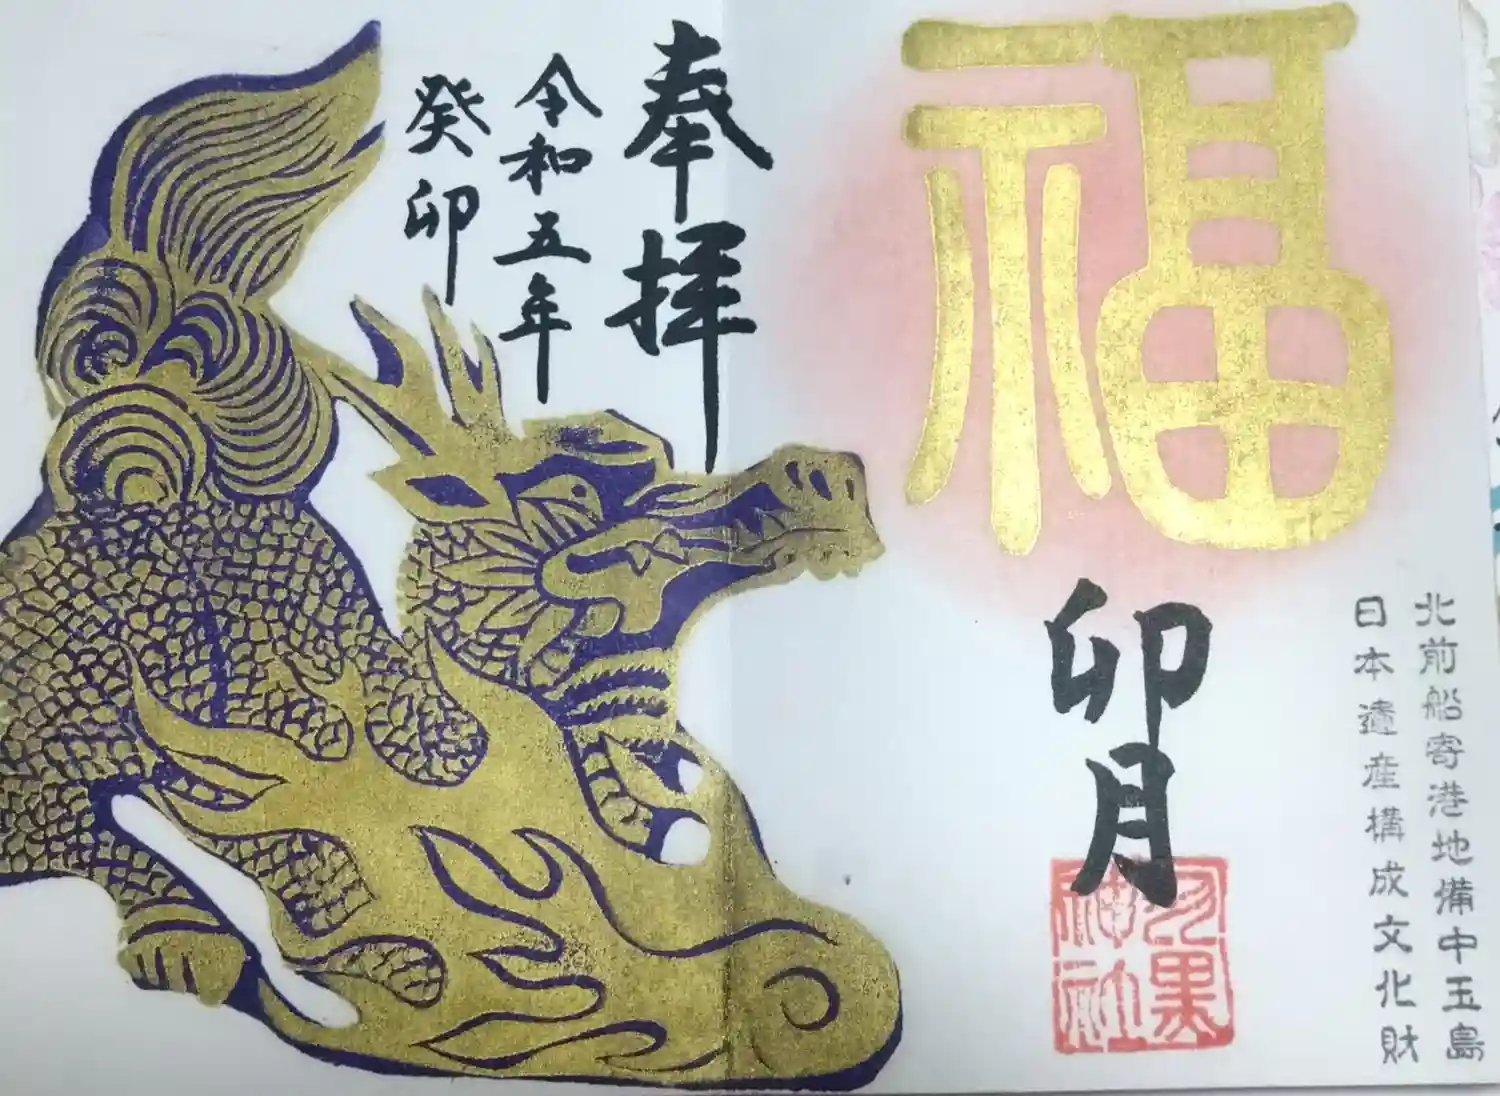 北前船寄港地備中玉島
日本遺産構成文化財
福
卯月
羽黒
神社
奉拝
令和五年
癸卯